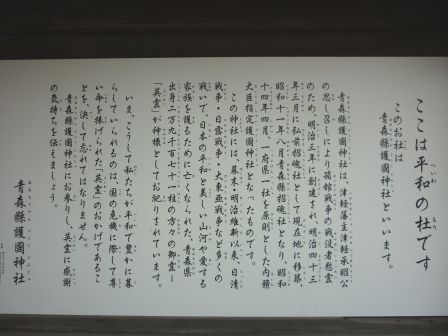 ここは平和の杜です
このお社は
青森縣護國神社といいます。
青森縣護國神社は、津軽藩主津軽承昭公
の思し召しにより箱館戦争の戦没者慰霊
のため、明治三年に創建され、明治四十三
年三月に弘前招魂社として現在地に移築、
昭和十一年八月青森縣招魂社となり、昭和
十四年四月一府県一社を原則とした内務
大臣指定護國神社となったものです。
この神社には、幕末・明治維新以来、日清
戦争・日露戦争・大東亜戦争など多くの
戦いで、日本の平和と美しい山河や愛する
家族を護るために亡くなられた、青森県
出身二万九千百七十一柱の方々の御霊―
「英霊」が神様としてお祀りされています。
いま、こうして私たちが平和で豊かに暮
らしていられるのは、国の危機に際して尊
い命を捧げられた「英霊」のおかげであるこ
とを、決して忘れてはなりません。
青森縣護國神社にお参りし、英霊に感謝
の気持ちを伝えましょう。
青森縣護國神社